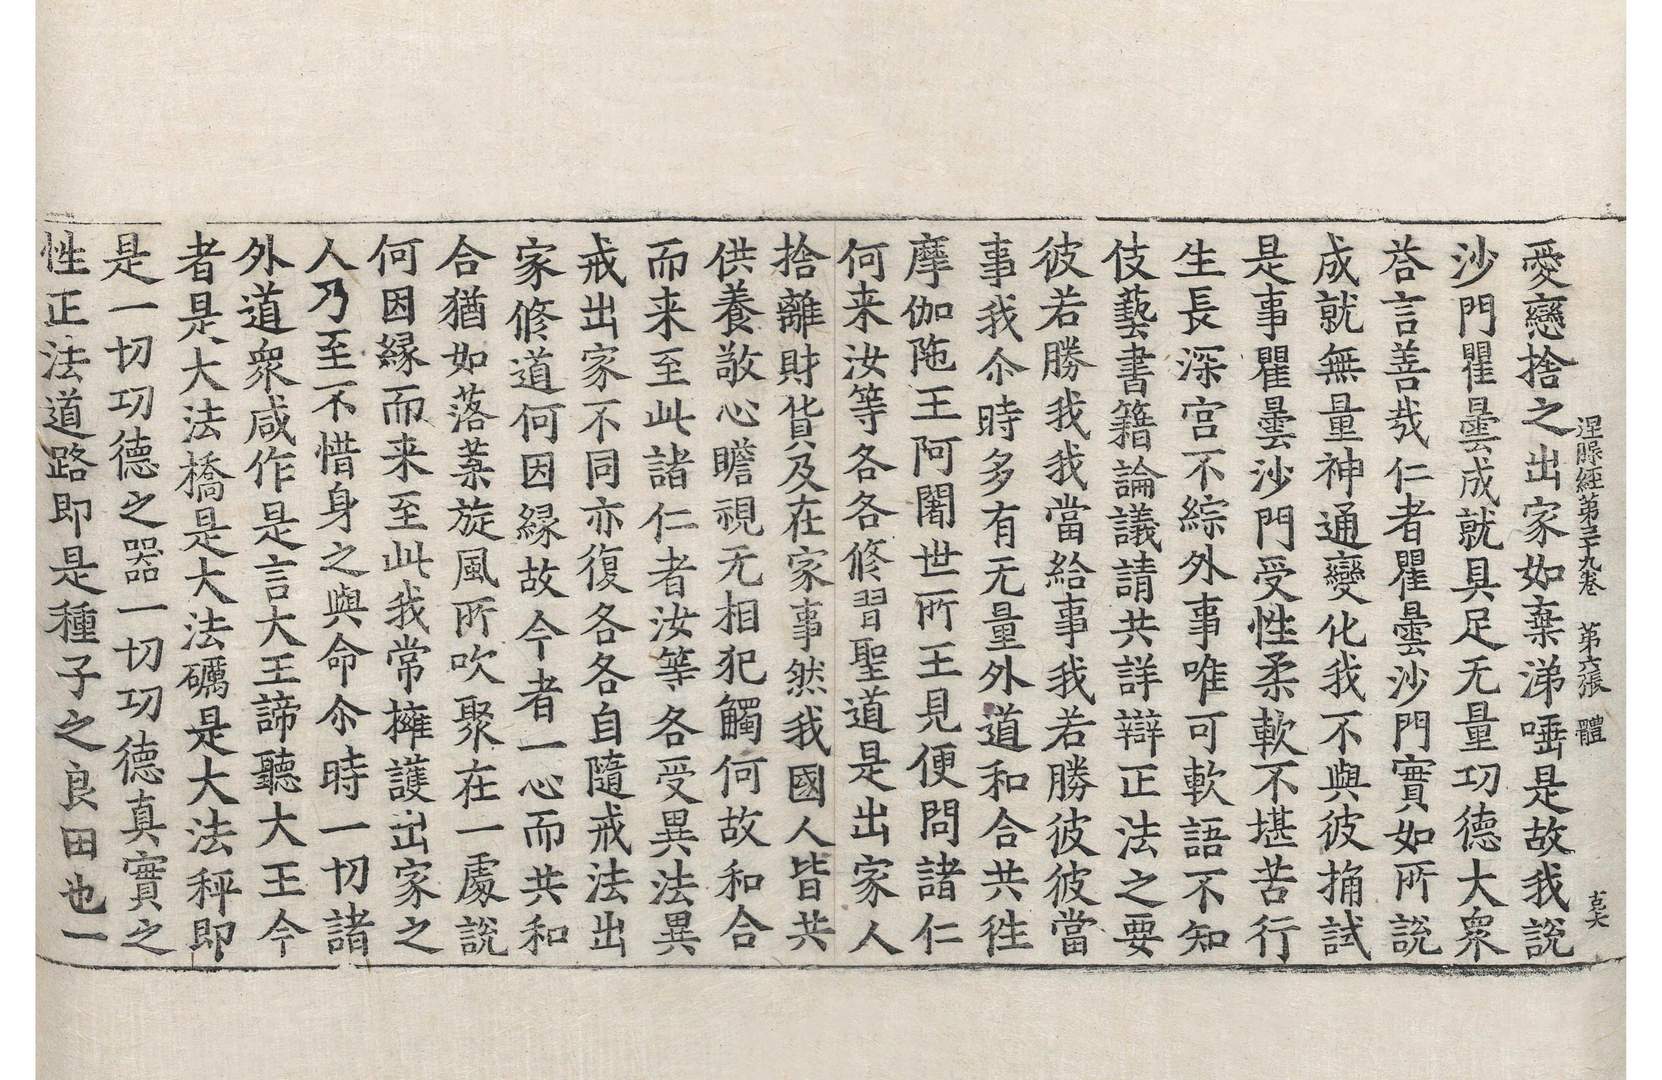 涅槃経第三十九巻　第六張　體　克大
愛戀捨之出家如棄涕唾是故我說
沙門瞿曇成就具足无量功德大衆
荅言善㢤仁者瞿曇沙門實如所說
成就無量神通變化我不與彼捔試
是事瞿曇沙門受性柔軟不堪苦行
生長深宫不綜外事唯可軟語不知
伎藝書籍論議請共詳辯正法之要
彼若勝我我當給事我若勝彼彼當
事我尒時多有无量外道和合共徃
摩伽陁王阿闍世所王見便問諸仁
何来汝等各各修習聖道是出家人
捨離財貨及在家事然我國人皆共
供養敬心瞻視无相犯觸何故和合
而来至此諸仁者汝等各受異法異
戒出家不同亦復各各自隨戒法出
家修道何因縁故今者一心而共和
合猶如落葉旋風所吹聚在一處說
何因縁而来至此我常擁護出家之
人乃至不惜身之與命尒時一切諸
外道衆咸作是言大王諦聽大王今
者是大法橋是大法礪是大法秤即
是一切功德之器一切功德真實之
性正法道路即是種子之良田也一